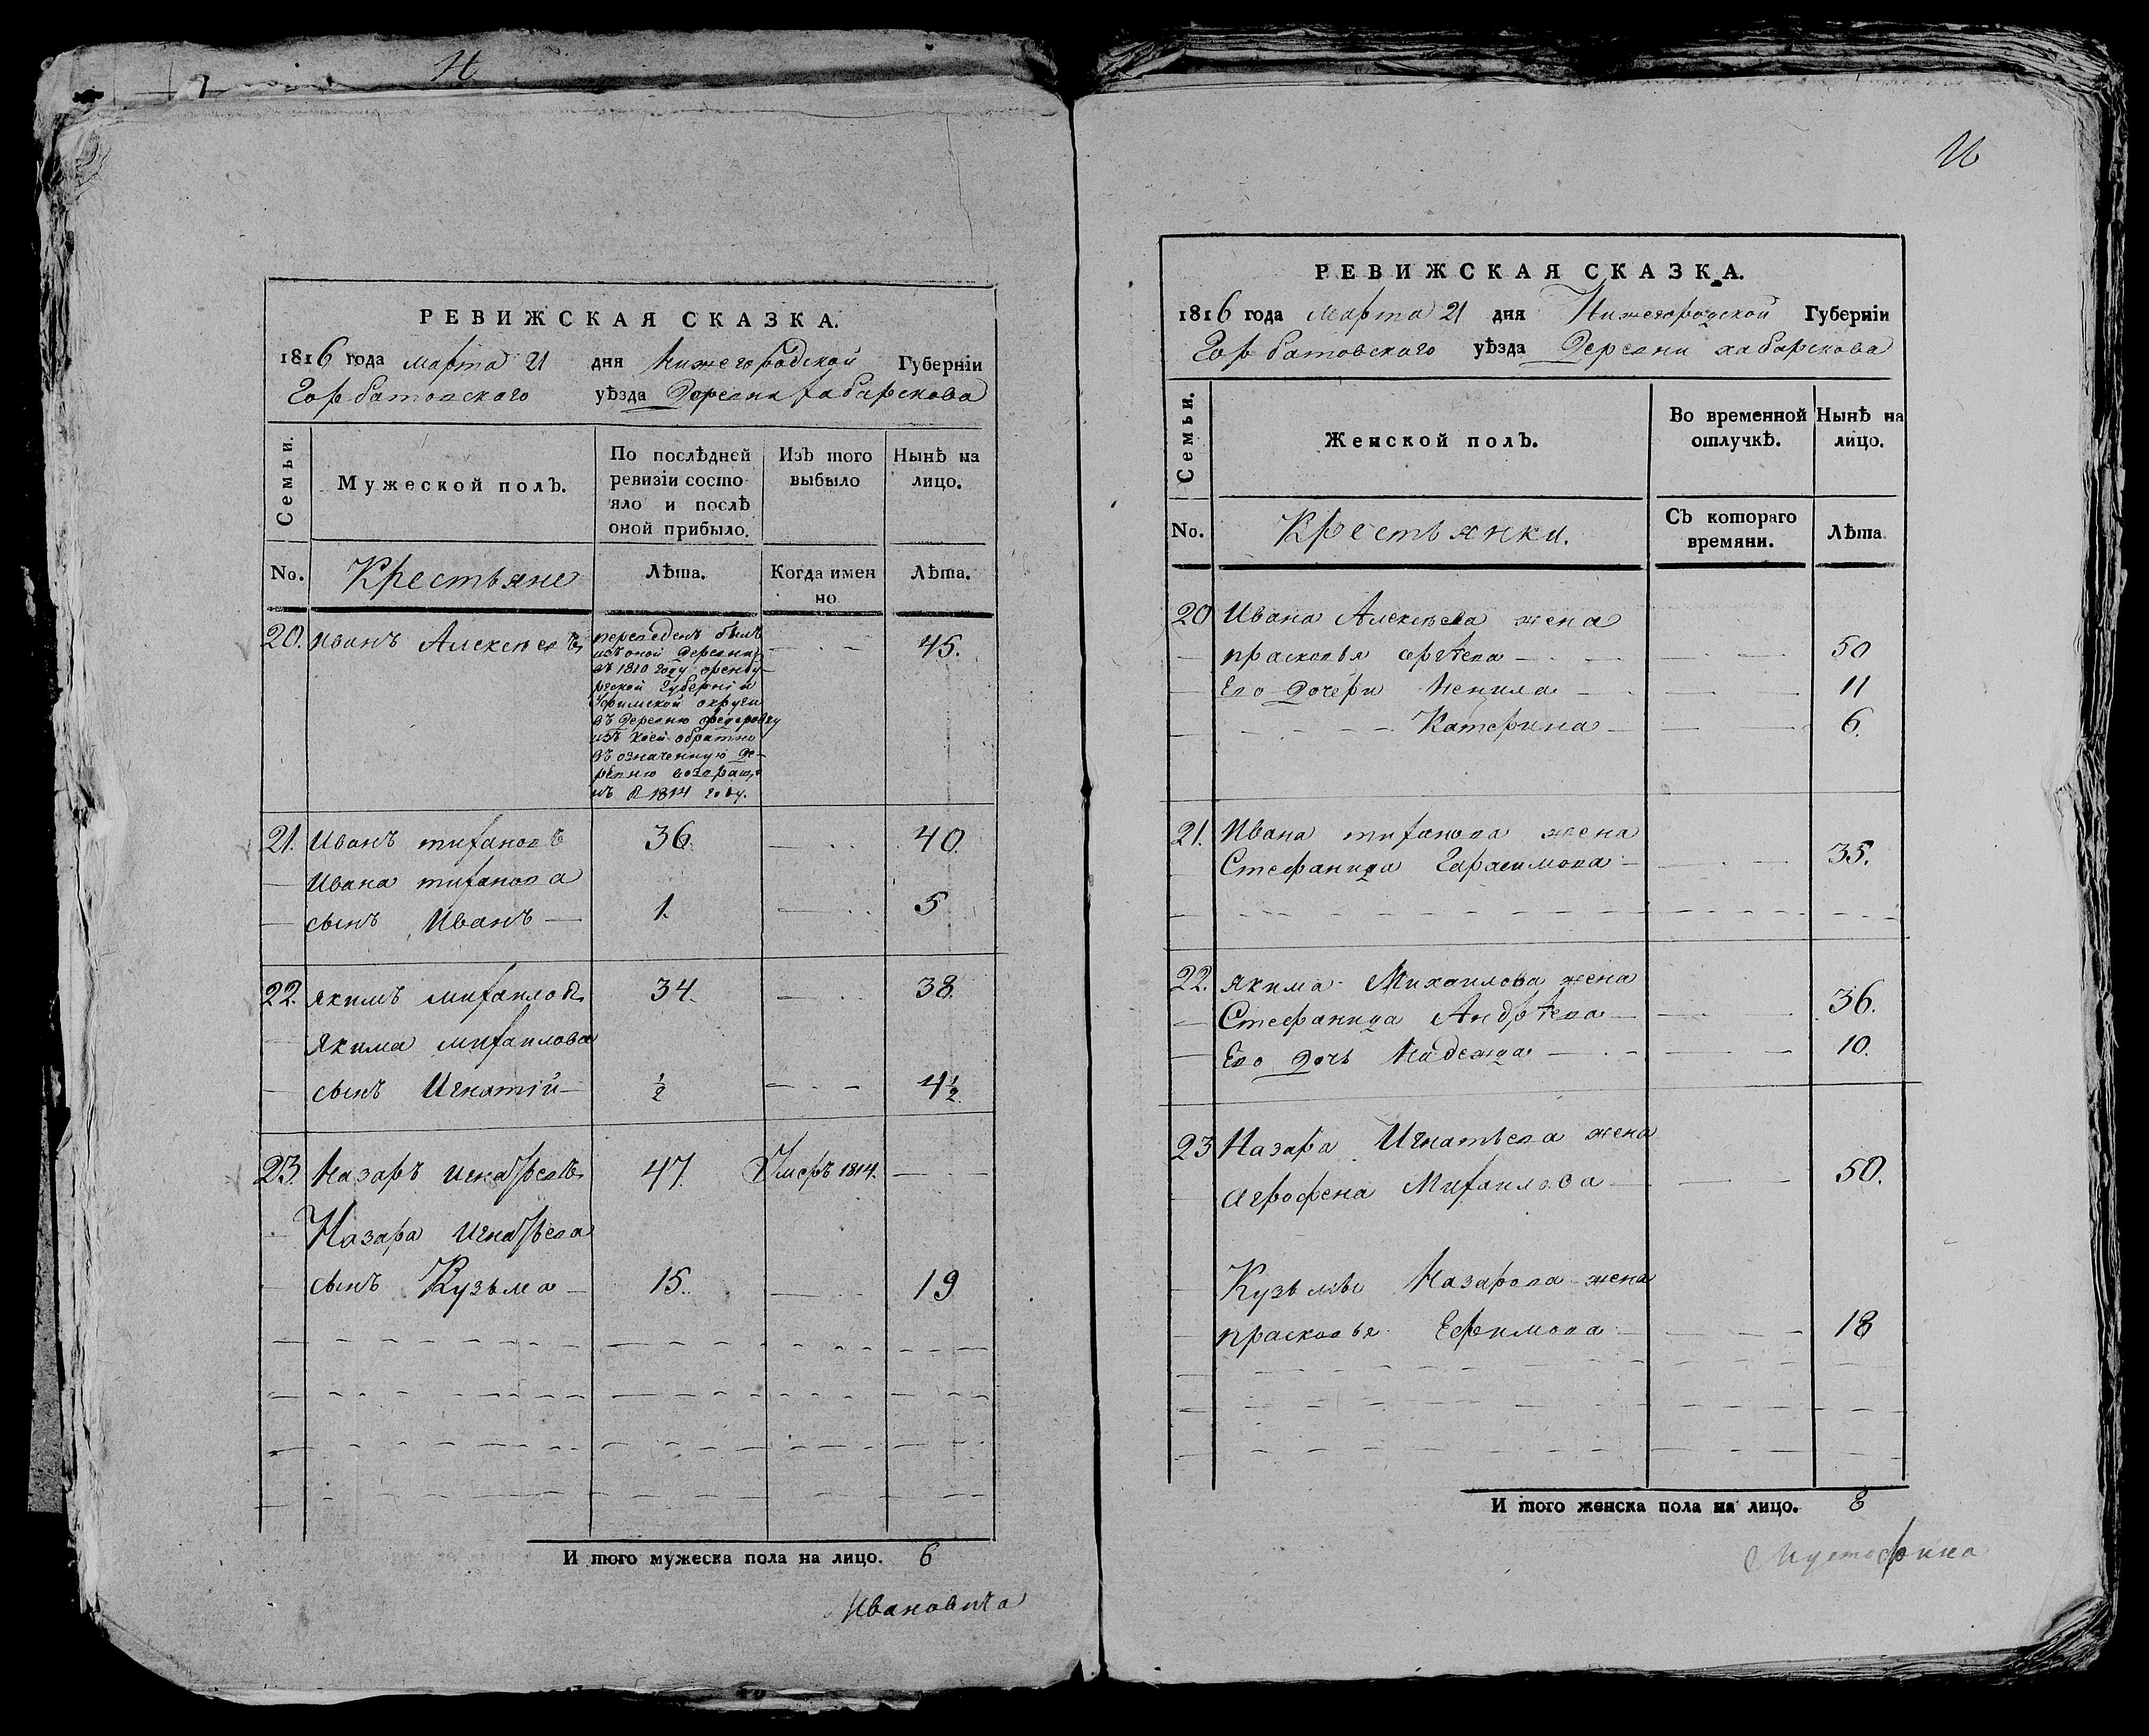 РЕВИЖСКАЯ СКАЗКА.
1816 года марта 21 дня Нижегородской Губерніи
Горбатовского уѣзда Деревни хабарскова
Семьи.
Мужеской полъ.
По послѣдней
ревизіи состо
яло и послѣ
оной прибыло.
Изъ того
выбыло
Нынѣ на
лицо.
No.
Крестьяне
Лѣта.
Когда имен
но
Лѣта.
20. Иванъ Алексѣевъ
переведенъ былъ
изъ оной деревни
въ 1810 году оренбу-
ргской Губерніи
Уфимской округи
въ деревню федоровку
изъ коей обратно
въ означенную де-
ревню возвращ
въ 1814 году.
45.
21. Иванъ тихановъ 36 40.
Ивана тиханова
сынъ Иванъ 1. 5
22. якимъ михаиловъ 34. 38.
Якима михаилова
сынъ Игнатій ½ 4½
23. Назаръ игнатьевъ 47. Умеръ 1814.
Назара игнатьева
сынъ Кузьма 15. 19
И того мужеска пола на лицо. 6
Ивановича
И
РЕВИЖСКАЯ СКАЗКА.
1816 года марта 21 дня Нижегородской Губерніи
Горбатовского уѣзда Деревни хабарскова
Семьи.
Женской полъ.
Во временной
отлучкѣ.
Нынѣ на
лицо.
No.
Крестьянки.
Съ котораго
времяни.
Лѣта
20 Ивана Алексѣева жена
прасковья 50
Его дочери Ненила 11
Катерина 6.
21. Ивана тиханова жена
Стефанида Гарасимова 35.
22. якима Михаилова жена
Стефанида Андрѣева 36.
Его дочь Надежда 10.
23 Назара Игнатьева жена
агрофена Михаилова 50.
Кузьмы Назарова жена
прасковья Ефимова 18
И того женска пола на лицо. 8